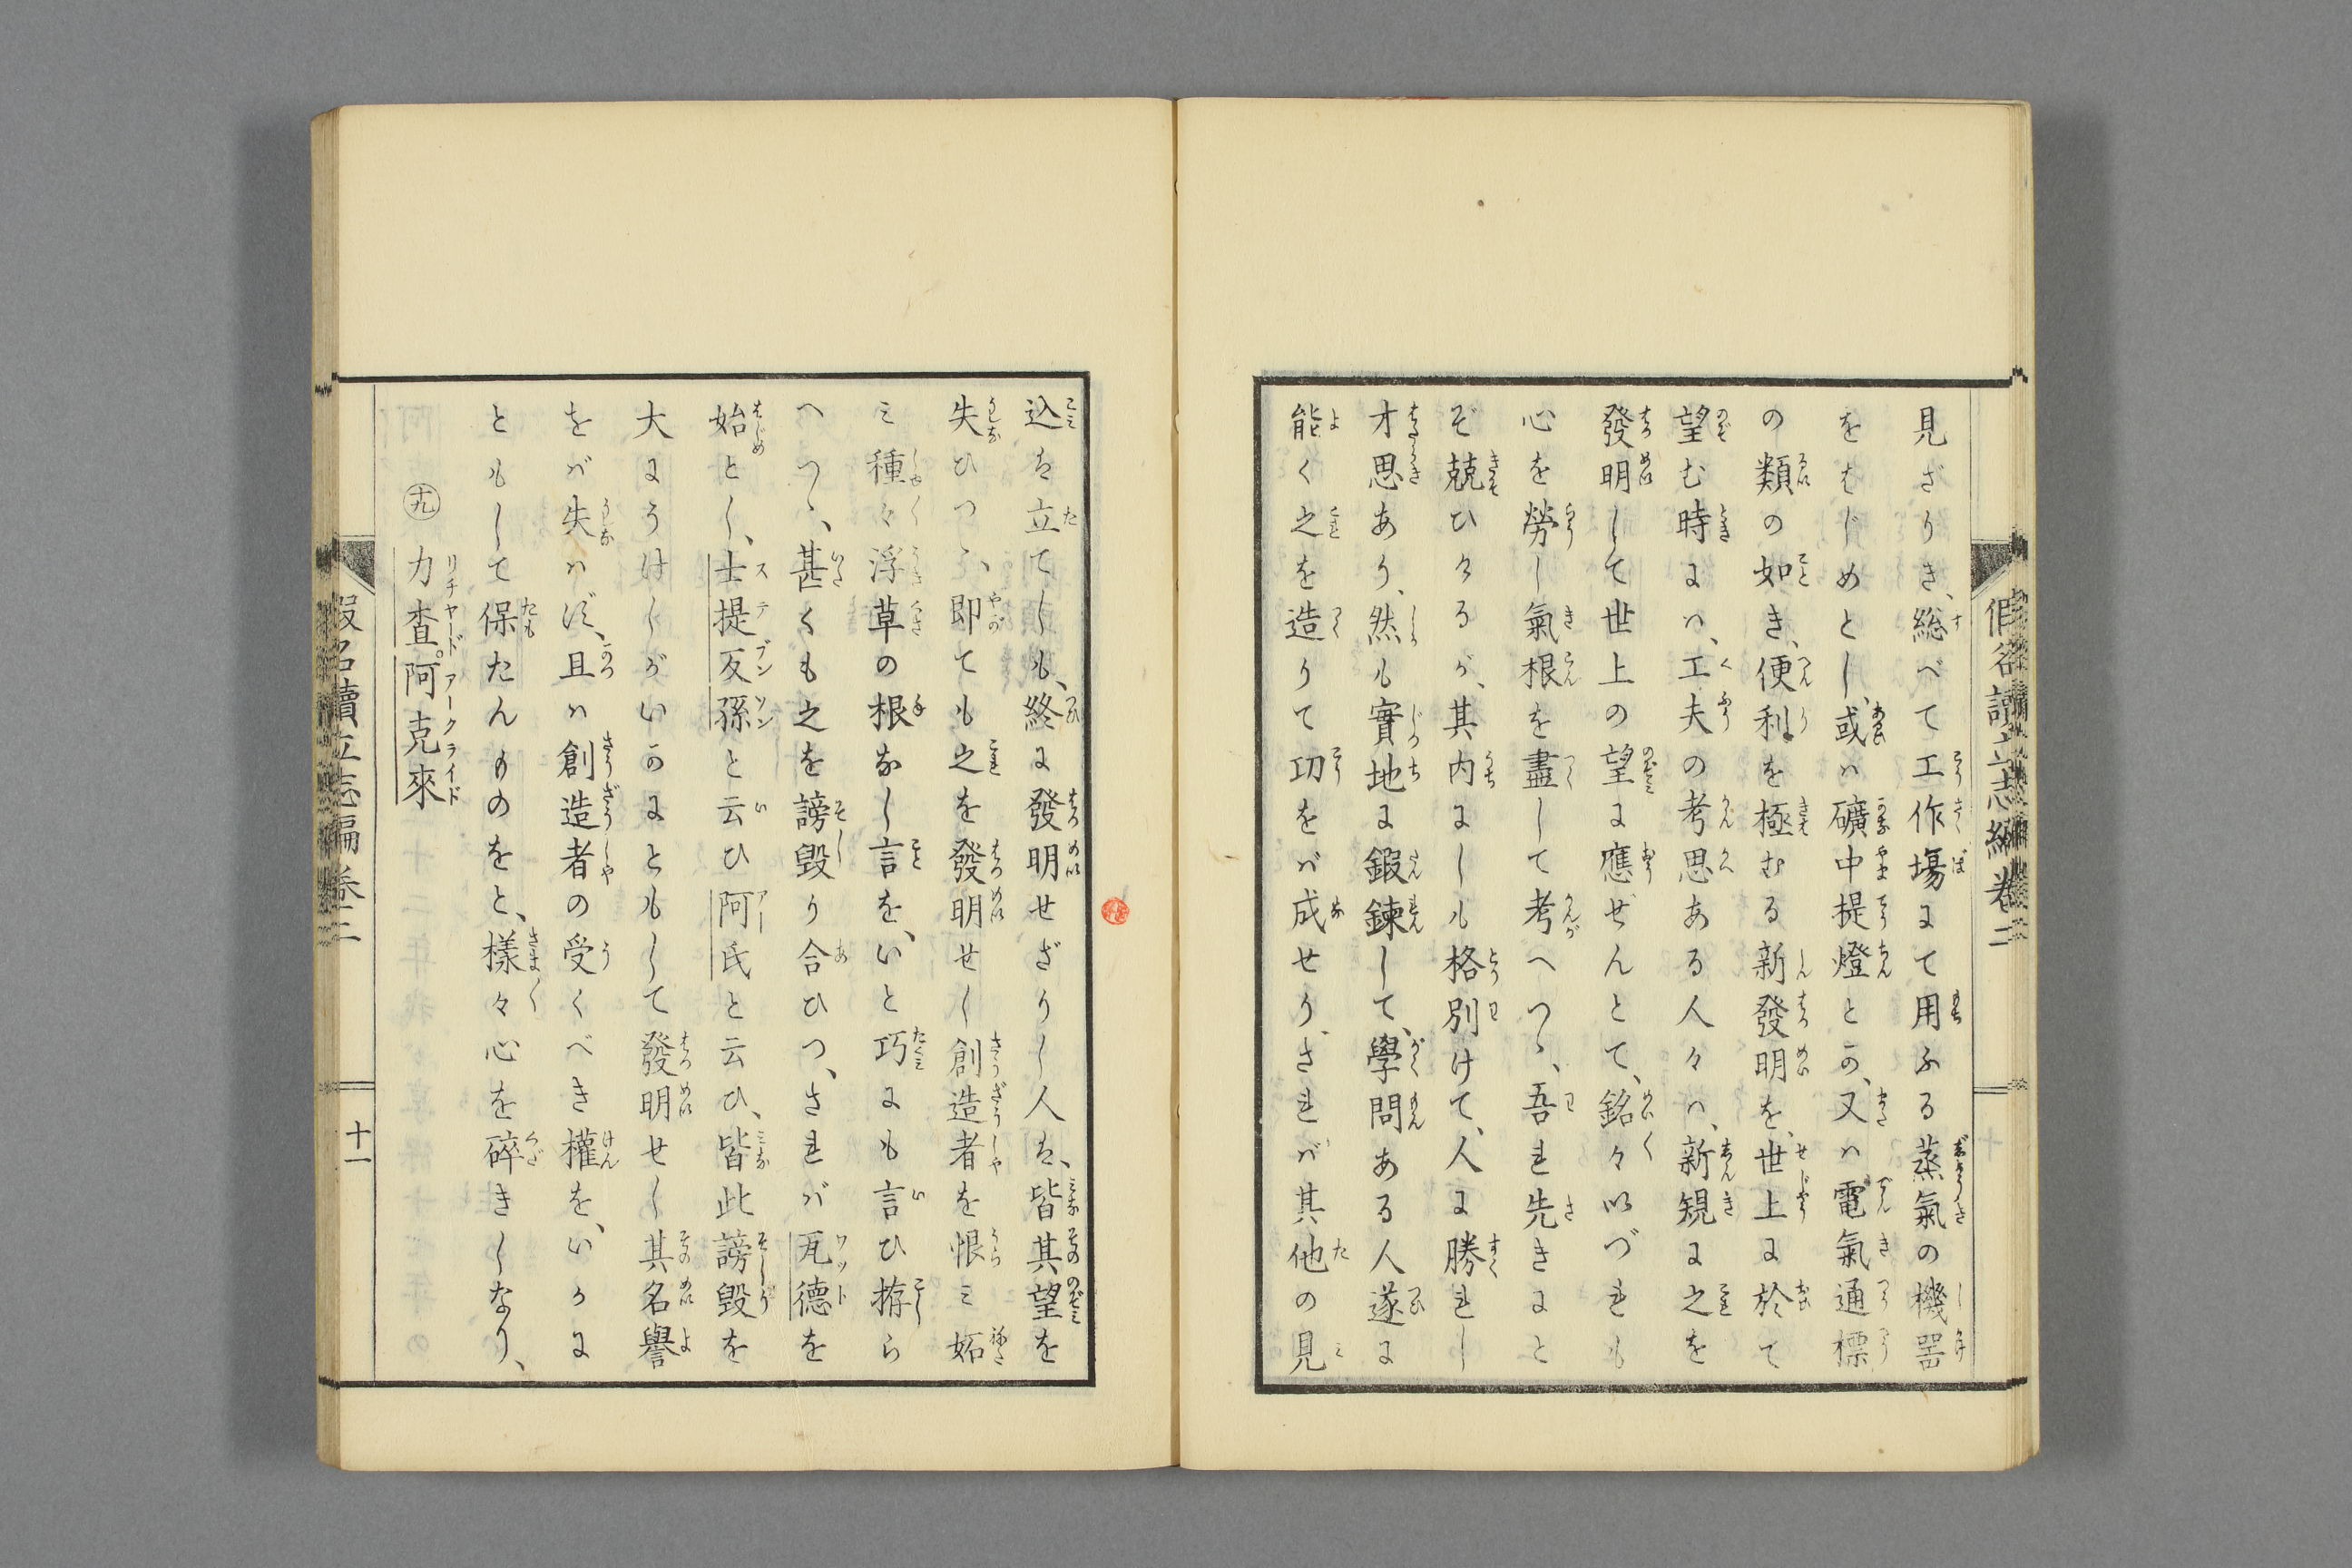 見ざりき、総べて工作塲にて用ふる蒸氣の機噐
をはじめとし、或ハ礦中提燈とか、又ハ電氣通標
の類の如き、便利を極むる新發明を、世上に於て
望む時にハ、工夫の考思ある人々ハ、新規に之を
發明して世上の望に應ぜんとて、銘々いづれも
心を勞し氣根を盡して考へつゝ、吾れ先きにと
ぞ兢ひけるが、其内にしも格別けて、人に勝れし
才思あり、然も實地に鍜鍊して、學問ある人遂に
能く之を造りて功をバ成せり、されバ其他の見
込は立てしも、終に發明せざりし人は、皆其望を
失ひつゝ、即ても之を發明せし創造者を恨み妬
み種々浮草の根なし言を、いと巧にも言ひ拵ら
へつゝ、甚くも之を謗毀り合ひつ、されバ瓦德を
始とし、士提反孫と云ひ阿氏と云ひ、皆此謗毀を
大にうけしがいかにともして發明せし其名譽
をバ失ハず、且ハ創造者の受くべき權を、いかに
ともして保たんものをと、樣々心を碎きしなり、
㊈ 力査。阿克來
リチヤード アークライド
假名讀立志編 卷二
十一